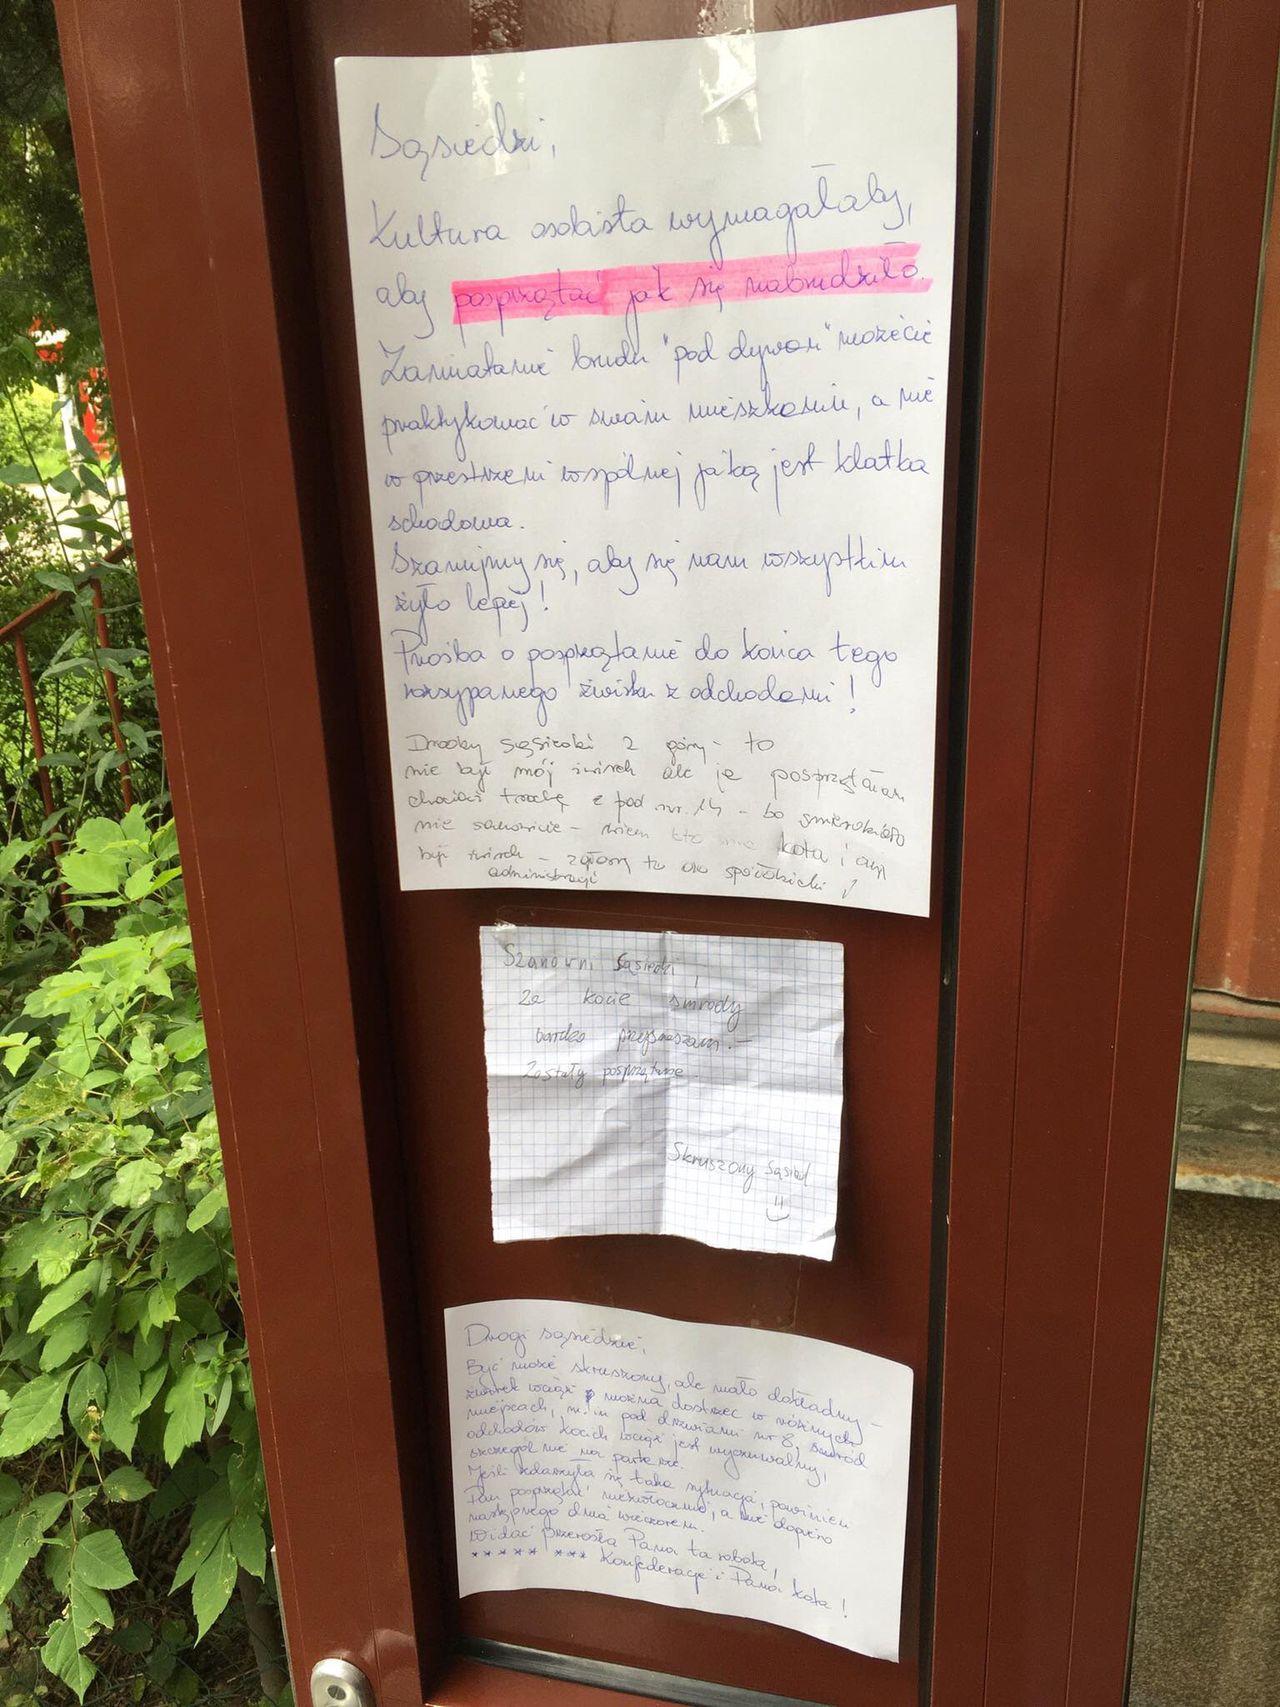 Sąsiedzi,
Kultura osobista wymagałaby,
aby posprzątać jak się nabrudziło.
Zamiatanie brudu "pod dywan" możecie
praktykować w swoim mieszkaniu, a nie
w przestrzeni wspólnej jaką jest klatka
schodowa.
Szanujmy się, aby się nam wszystkim
żyło lepej!
Prośba o posprzątanie do końca tego
rozsypanego żwirku z odchodami!
Drodzy sąsiedzi z góry - to
nie był mój żwirek ale ja posprzątałam
chociaż trochę z pod nr. 14 - bo śmierdziało
nie sanowicie - wiem kto ma kota i czyj
był żwirek - zgłoszę to do spółdzielni
administracji
Szanowni Sąsiedzi,
Za kocie smrody
bardzo przepraszam. -
Zostały posprzątane.
Skruszony Sąsiad
Drogi sąsiedzie,
Być może skruszony, ale mało dokładny -
żwirek wciąż można dostrzec w różnych
miejscach, m.in pod drzwiami nr 8, smród
odchodów kocich wciąż jest wyczuwalny,
szczególnie na parterze.
Jeśli zdarzyła się taka sytuacja, powinien
Pan posprzątać niezwłocznie, a nie dopiero
następnego dnia wieczorem.
Widać przerosła Pana ta robota!
***** *** Konfederację i Pana kota!